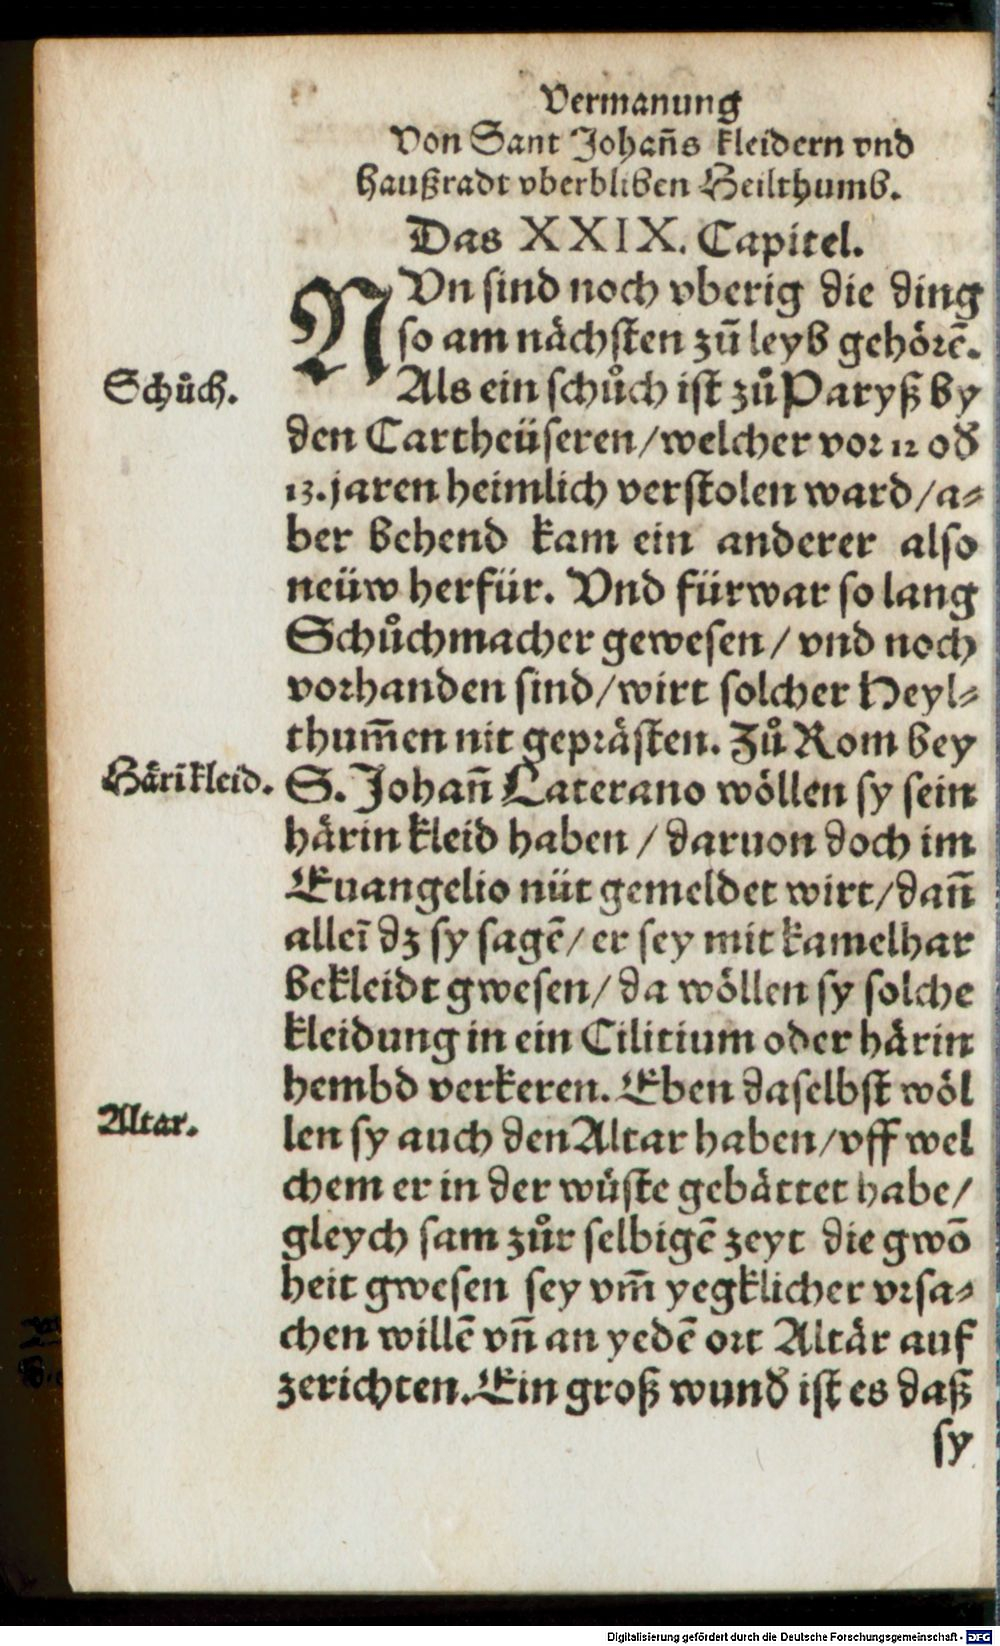 Vermanung
Von Sant Johan̄s kleidern vnd
haußradt vberbliben Heilthumb.
Das XXIX. Capitel.
NVn sind noch vberig die ding
so am nächsten zū leyb gehörē.
Schůch.
Als ein schůch ist zů Paryß by
den Cartheüseren/welcher vor 12 od
13. jaren heimlich verstolen ward/a-
ber behend kam ein anderer also
neüw herfür. Vnd fürwar so lang
Schůchmacher gewesen/ vnd noch
vorhanden sind/wirt solcher Heyl-
thum̄en nit geprästen. Zů Rom bey
Härīkleid.
S. Johan̄ Laterano wöllen sy sein
härin kleid haben / daruon doch im
Euangelio nüt gemeldet wirt/dan̄
alleī dz sy sagē/ er sey mit kamelhar
bekleidt gwesen/ da wöllen sy solche
kleidung in ein Cilitium oder härin
hembd verkeren. Eben daselbst wöl
Altar.
len sy auch den Altar haben/vff wel
chem er in der wüste gebättet habe/
gleych sam zůr selbigē zeyt die gwō
heit gwesen sey vm̄ yegklicher vrsa-
chen willē vn̄ an yedē ort Altär auf
zerichten. Ein groß wund ist es daß
sy
Digitalisierung gefördert durch die Deutsche Forschungsgemeinschaft - DFG